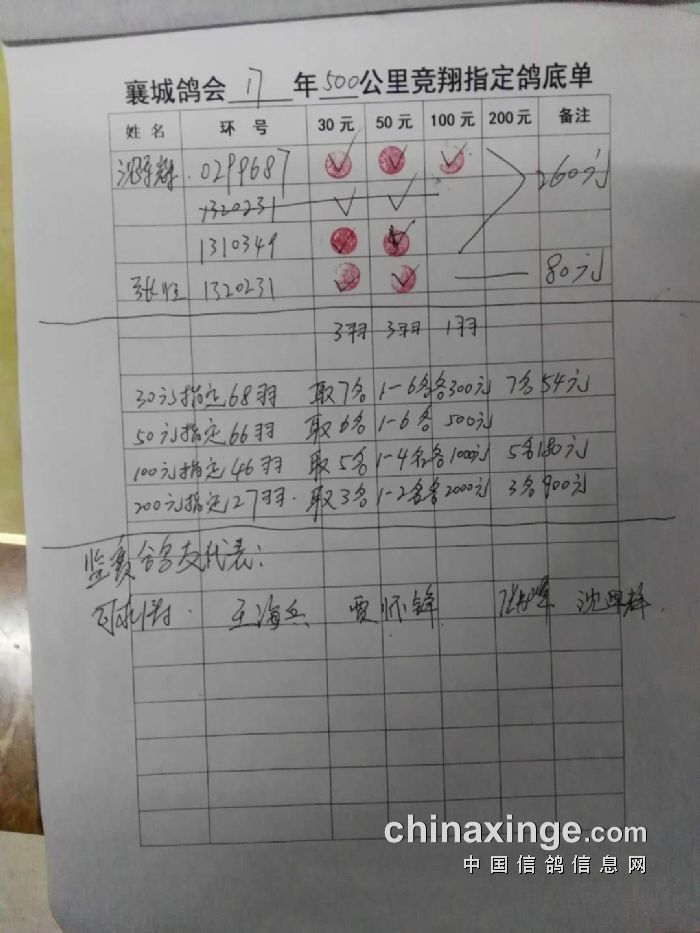 襄城鸽会 17 年 500 公里竞翔指定鸽底单
姓名 环号 30元 50元 100元 200元 备注
0299687 260元
1320231
1310349
1320231 80元
3羽 3羽 1羽
30元指定68羽 取7名 1-6名各300元 7名54元
50元指定66羽 取6名 1-6名 500元
100元指定46羽 取5名 1-4名各1000元 5名180元
200元指定27羽 取3名 1-2名各2000元 3名900元
监赛鸽友代表:
王海兵 贾怀锋
chinaxinge.com
中国信鸽信息网